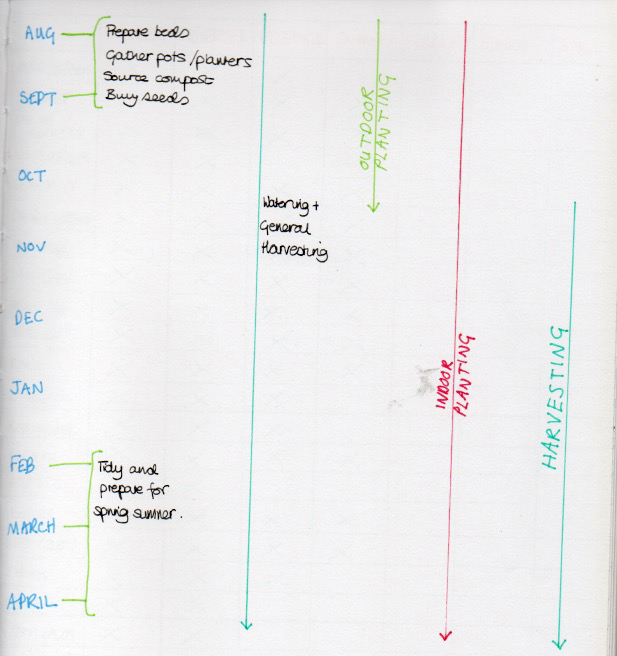 AUG
Prepare beds
Gather pots/planters
Source compost
SEPT
Buy seeds
OCT
NOV
DEC
JAN
FEB
MARCH
APRIL
Tidy and
prepare for
spring summer.
Watering +
General
Harvesting
OUTDOOR
PLANTING
INDOOR
PLANTING
HARVESTING